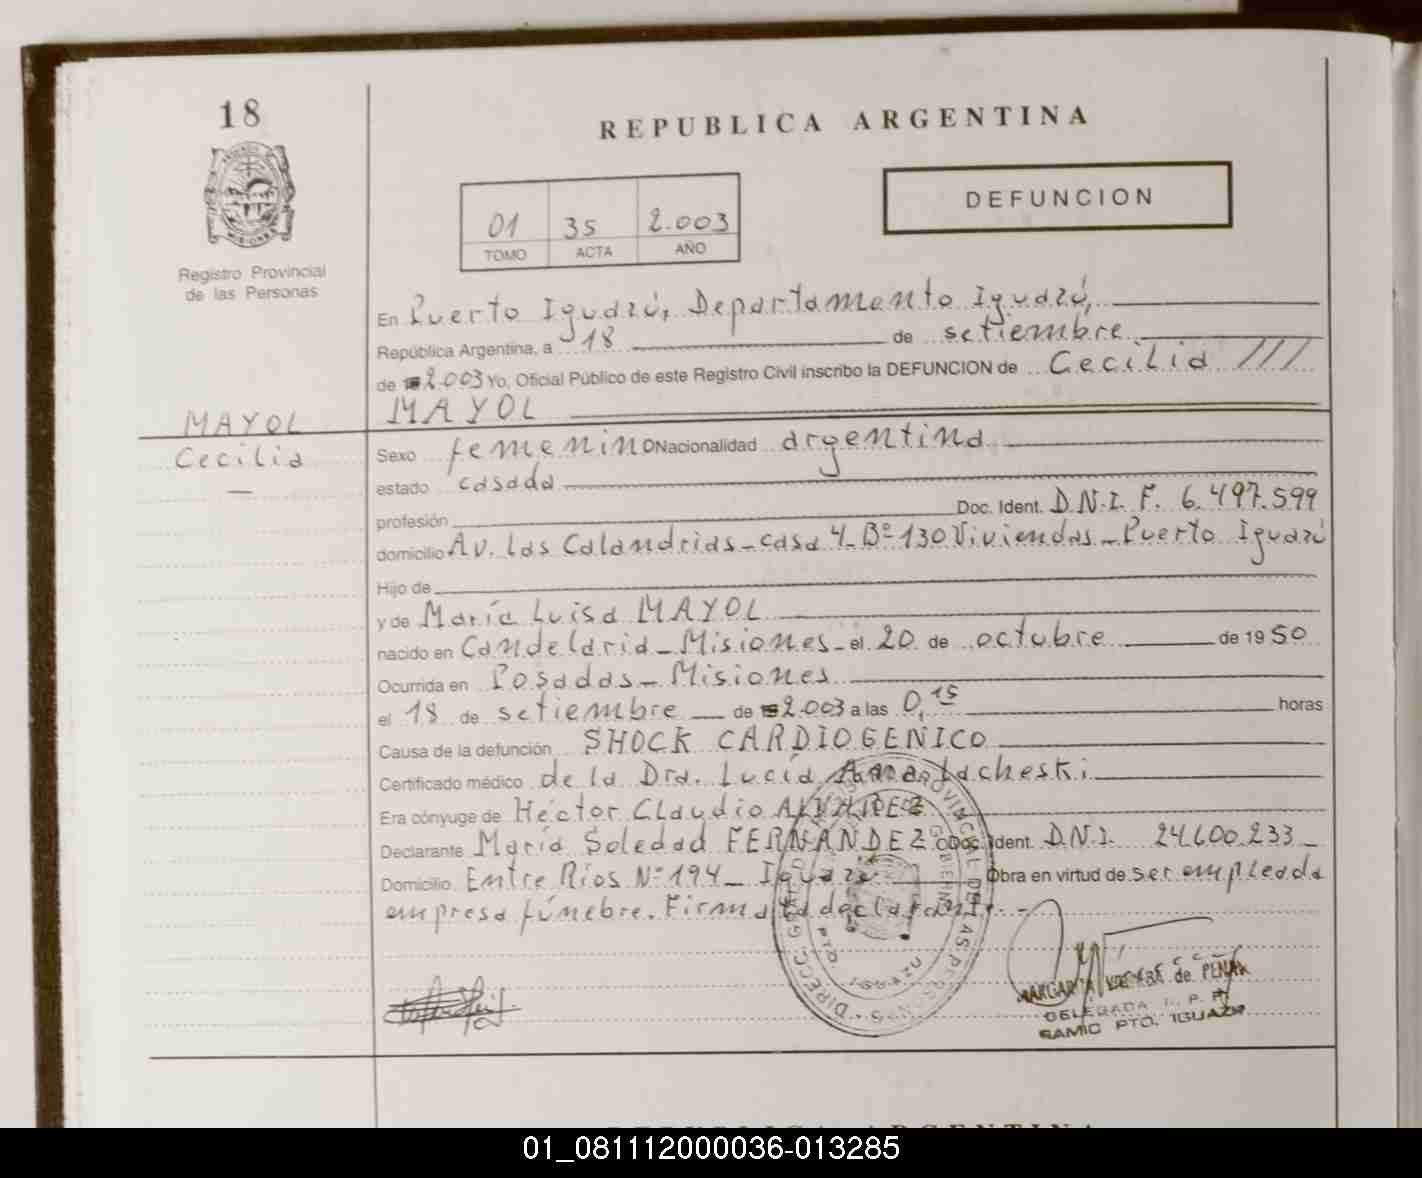 18
REPUBLICA ARGENTINA
DEFUNCION
01 35 2.003
TOMO ACTA AÑO
Registro Provincial
de las Personas
En Puerto Iguazú, Departamento Iguazú,
República Argentina, a 18 de setiembre
de 2.003 Yo, Oficial Público de este Registro Civil inscribo la DEFUNCION de Cecilia ///
MAYOL
MAYOL
Cecilia
—
Sexo femenino Nacionalidad argentina
estado casada
profesión Doc. Ident. D.N.I. F. 6.497.599
domicilio Av. Las Calandrias - casa 4 - Bº 130 Viviendas - Puerto Iguazú
Hijo de
y de María Luisa MAYOL
nacido en Candelaria - Misiones - el 20 de octubre de 1950
Ocurrida en Posadas - Misiones
el 18 de setiembre de 2.003 a las 0,15 horas
Causa de la defunción SHOCK CARDIOGENICO
Certificado médico de la Dra. Lucía
Era cónyuge de Héctor Claudio ALVAREZ
Declarante María Soledad FERNANDEZ Doc. Ident. D.N.I. 24.600.233 -
Domicilio Entre Rios Nº 194 - Iguazú Obra en virtud de ser empleada
empresa fúnebre. Firma la declarante. -
PTO. IGUAZU
MARGARITA de PEÑA
DELEGADA R. P. P.
SAMIC PTO. IGUAZU
REPUBLICA ARGENTINA
01_081112000036-013285